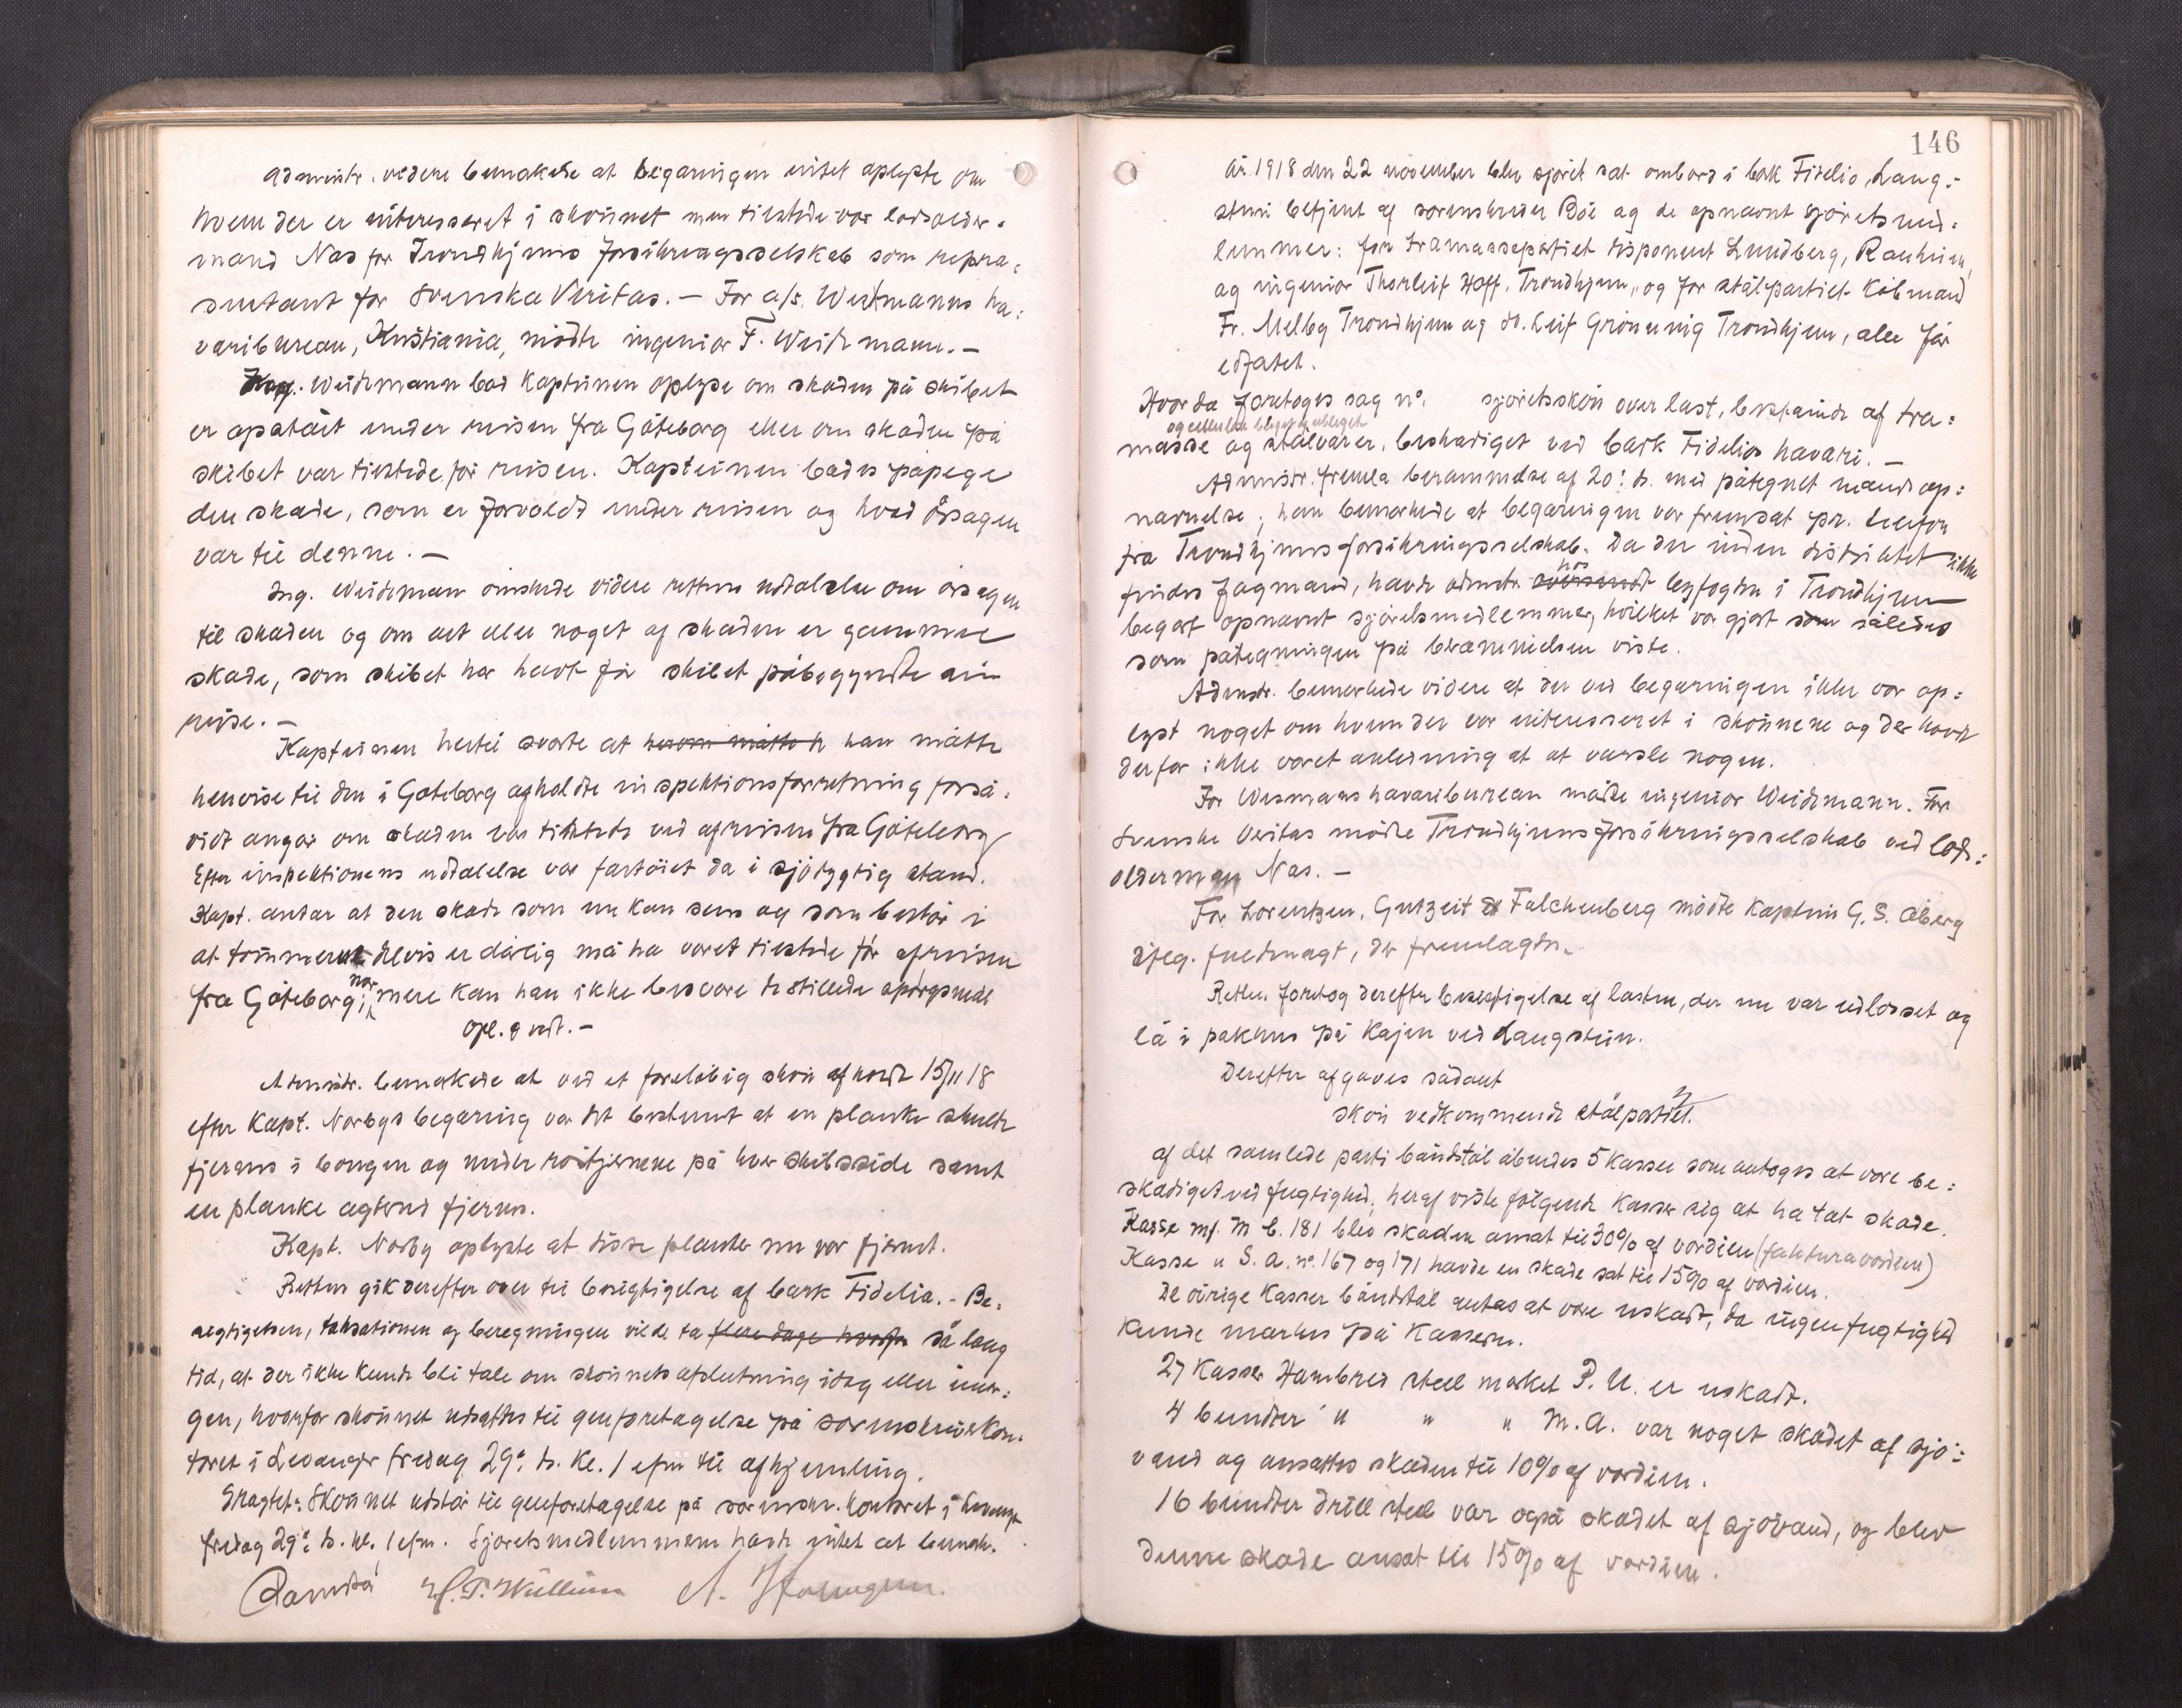 Administr. videre bemærkede at begæringen intet oplyste om
hvem der er interesseret i skönnet men tilstede var lodsolder-
mand Næs for Trondhjems forsikringsselskab som repræ-
sentant for Svenska Veritas. – For a/s. Weidmanns ha-
varibureau, Kristiania, mödte ingeniör F. Weidemann. –
Ing. Weidemann bad kapteinen oplyse om skaden på skibet
er opstået under reisen fra Göteborg eller om skaden på
skibet var tilstede för reisen. Kapteinen bades påpege
den skade, som er forvoldt under reisen og hvad årsagen
var til denne. –
Ing. Weideman önskede videre rettens udtalelse om årsagen
til skaden og om alt eller noget af skaden er gammel
skade, som skibet har havt för skibet påbegyndte sin
reise. –
Kapteinen hertil svarte at herom måtte h han måtte
henvise til den i Göteborg afholdte inspektionsforretning forså-
vidt angår om skaden var tilstede ved afreisen fra Göteborg
Efter inspektionens udtalelse var fartöiet da i sjödygtig stand.
Kapt. antar at den skade som nu kan sees og som består i
at tömmeret delvis er dårlig må ha været tilstede för afreisen
fra Göteborg; nær mere kan han ikke besvare de stillede spörgsmål
Opl. & vedt. –
Administr. bemærkede at ved et foreløbig skön afholdt 15/11 18
efter Kapt. Norbys begæring var det bestemt at en planke skulde
fjernes i bougen og under röstjernene på hver skibsside samt
en planke agterud fjernes.
Kapt. Norby oplyste at disse planker nu var fjernet.
Retten gik derefter over til besigtigelse af bark Fidelia. – Be-
sigtigelsen, taksationen og beregningen vilde ta flere dage hvorfor så lang
tid, at der ikke kunde bli tale om skönnets afslutning idag eller imor-
gen, hvorfor skönnet udsattes til genforetagelse på sorenskriverkon-
toret i Levanger fredag 29. ds. Kl. 1 efm til afhjemling.
Eragtet: Skönnet udstår til genforetagelse på sorenskr. kontoret i Levanger
fredag 29. ds. kl. 1 efm. Sjöretsmedlemmerne havde intet at bemærke.
146
År 1918 den 22 november blev sjöret sat ombord i bark Fidelio, Lang-
sten betjent af sorenskriver Böe og de opnævnt sjöretsmed-
lemmer: for træmassepartiet disponent Lundberg, Ranheim,
og ingeniör Thorleif Hoff, Trondhjem, og for stålpartiet Köbmand
Fr. Melby Trondhjem og do. Leif Grönning Trondhjem, alle för
edfæstet.
Hvorda foretoges sag no. sjöretsskön over last, bestående af træ-
og cellulose bleget og ubleget
masse og stålvarer, beskadiget ved bark Fidelios havari. –
Administr. fremla berammelse af 20. ds. med påtegnet mandsop-
nævnelse; han bemerkede at begæringen var fremsat pr. telefon
fra Trondhjems forsikringsselskab. Da der inden distriktet ikke
findes fagmænd, havde admstr. hos byfogden i Trondhjem
begært opnævnt sjöretsmedlemmer, hvilket var gjort som således
som påtegningen på berammelsen viste.
Admstr. bemerkede videre at der ved begæringen ikke var op-
lyst noget om hvem der var interesseret i skönnene og der havde
derfor ikke været anledning at at varsle nogen.
For Weimanns havaribureau mödte ingeniör Weidmann. For
Svenske Veritas mödte Trondhjems forsikringsselskab ved lods-
olderman Næs. –
For Lorentzen, Gutzeit & Falchenberg mödte Kaptein G. S. Åberg
ifölg. fuldmagt, der fremlagdes.
Retten foretog derefter besigtigelse af lasten, der nu var udlosset og
lå i pakhus på kajen ved Langsten.
Derefter afgaves sådant
skön vedkommende stålpartiet.
af det samlede parti båndstål åbnedes 5 kasser som antoges at være be-
skadiget ved fugtighed, heraf viste fölgende kasser sig at ha tat skade.
Kasse mf. M b. 181 blev skaden ansat til 30% af værdien (fakturaværdien)
Kasse " S. A. no. 167 og 171 havde en skade sat til 15% af værdien.
De övrige kasser båndstål antas at være uskadt, da ingen fugtighed
kunde mærkes på kasserne.
27 kasser Hambres steel merket P. U. er uskadt.
4 bundter " " " M.A. var noget skadet af sjö-
vand og ansattes skaden til 10% af værdien.
16 bundter drill steel var også skadet af sjövand, og blev
denne skade ansat til 15% af værdien.